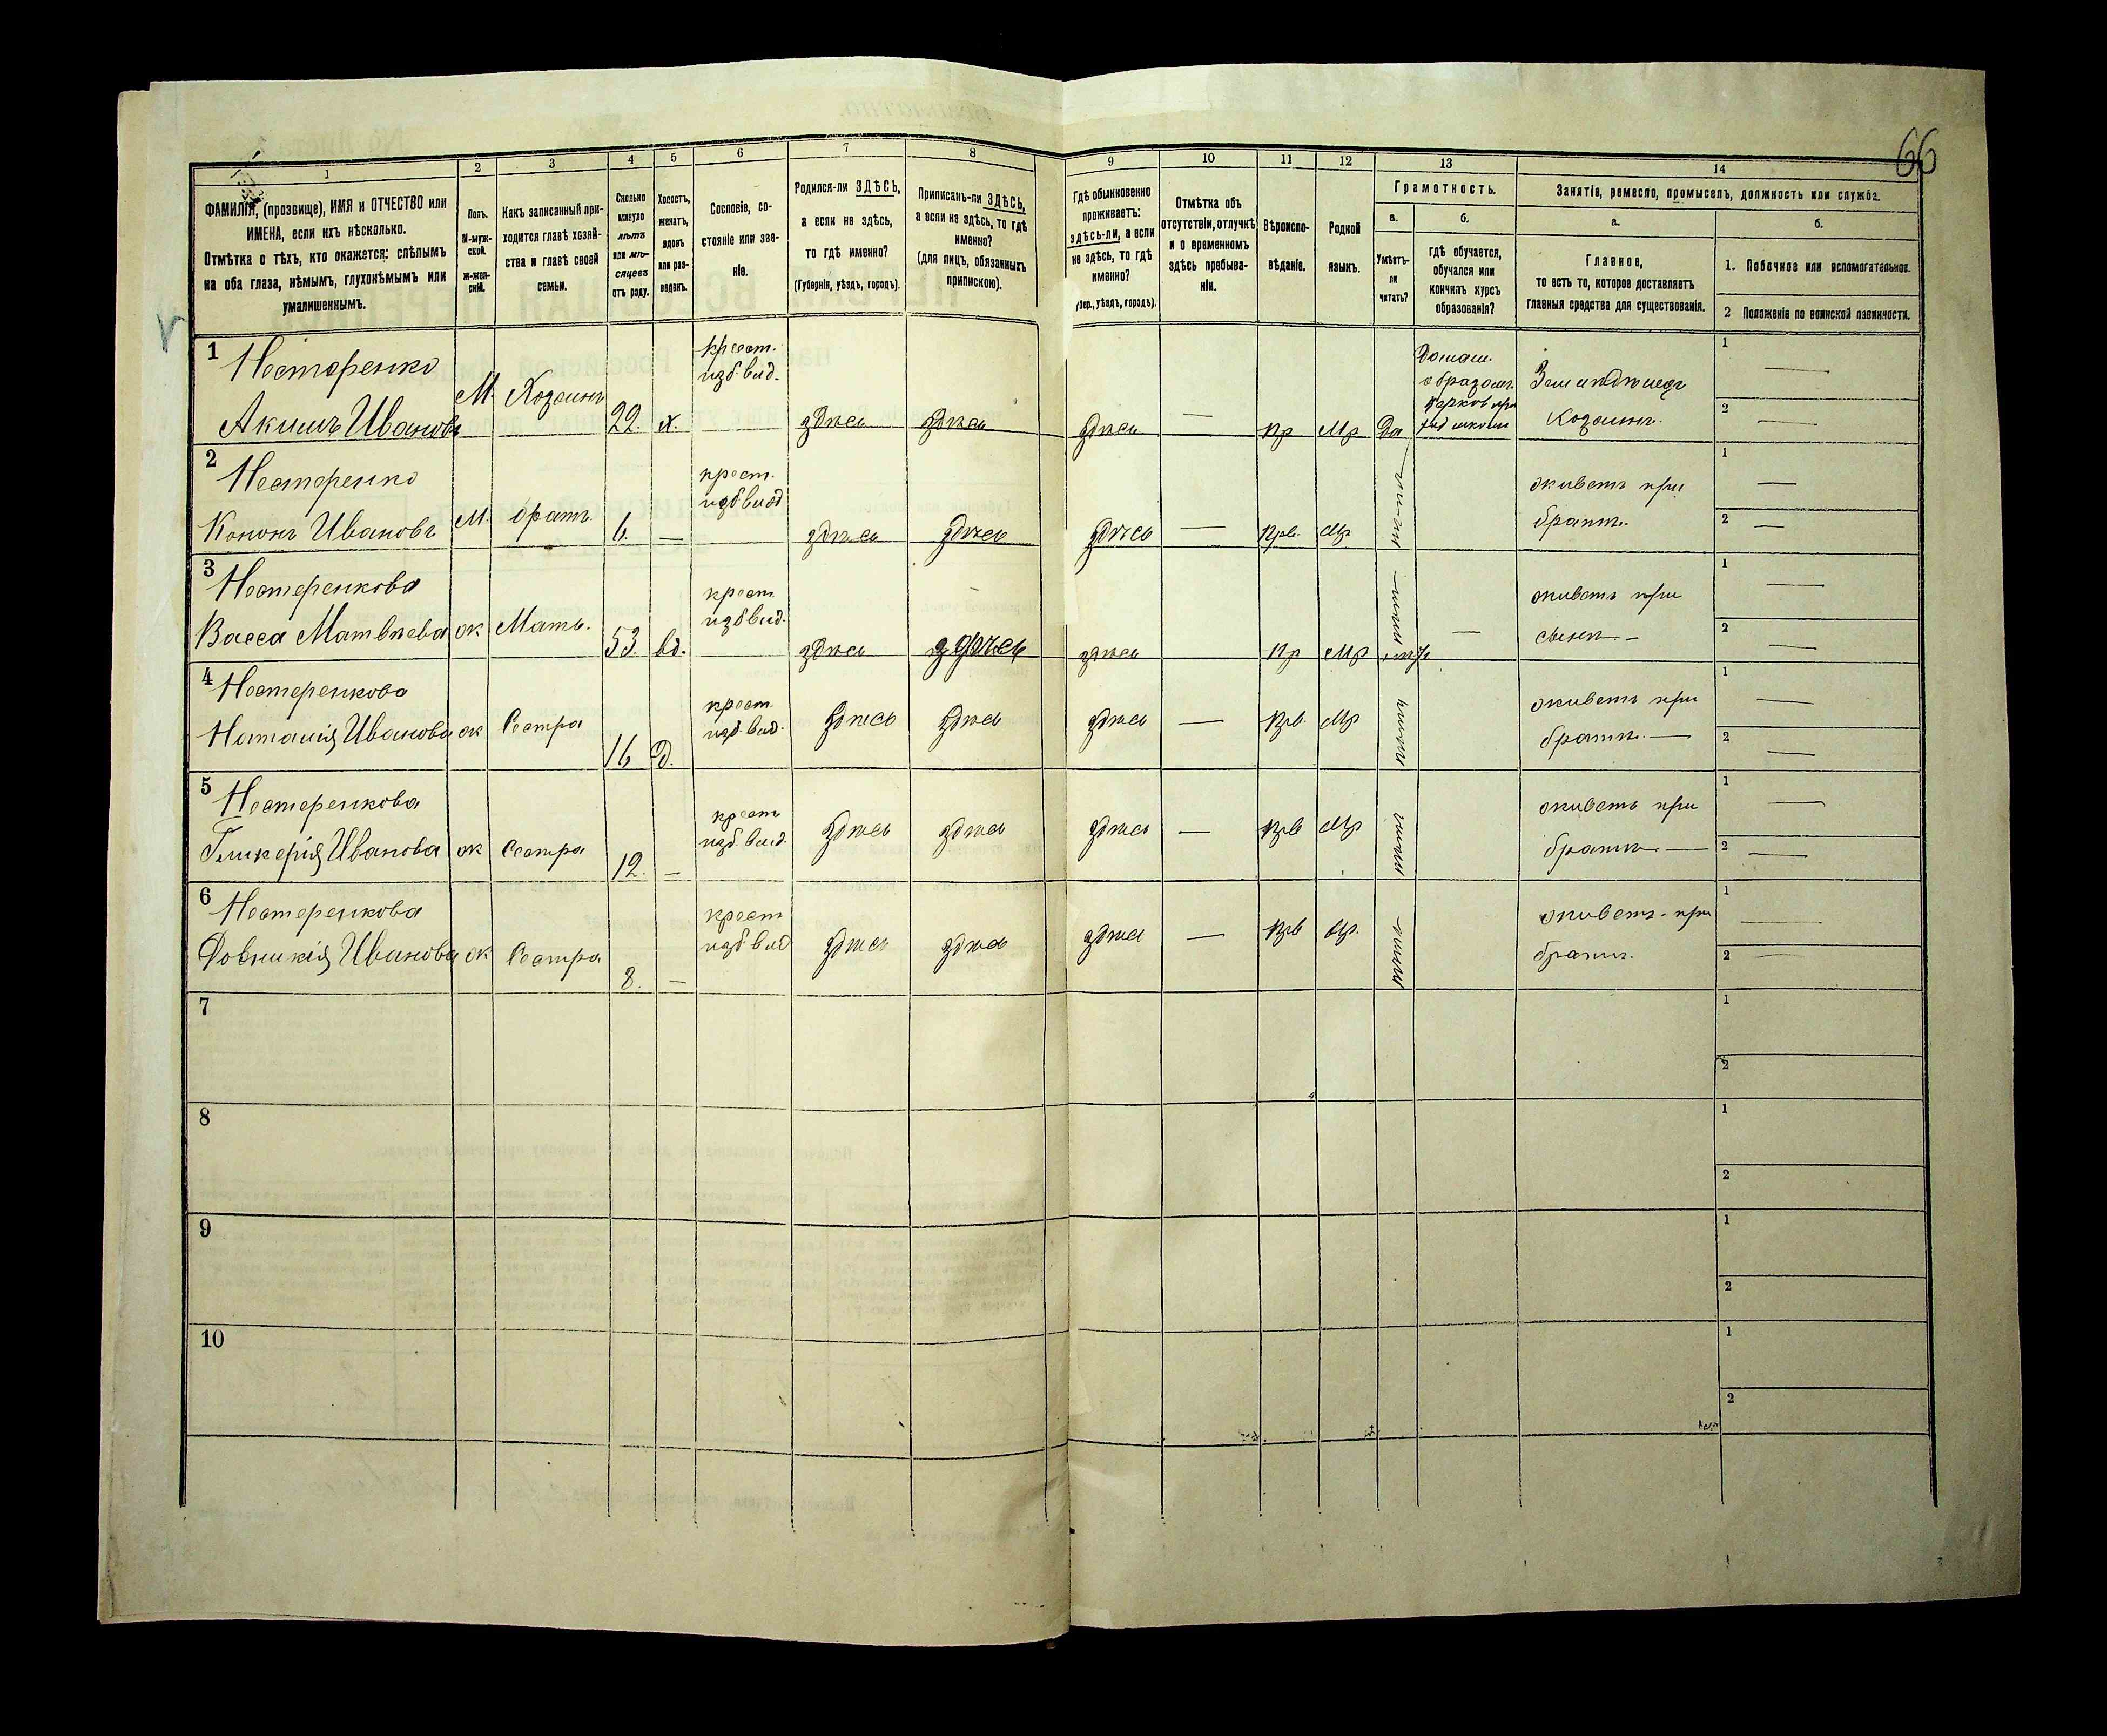 66
1 2 3 4 5 6 7 8 9 10 11 12 13 14
ФАМИЛІЯ, (прозвище), ИМЯ и ОТЧЕСТВО или
ИМЕНА, если ихъ нѣсколько.
Отмѣтка о тѣхъ, кто окажется: слѣпымъ
на оба глаза, нѣмымъ, глухонѣмымъ или
умалишеннымъ.
Полъ.
М-муж-
ской.
Ж-жен-
скій.
Какъ записанный при-
ходится главѣ хозяй-
ства и главѣ своей
семьи.
Сколько
минуло
лѣтъ
или мѣ-
сяцевъ
отъ роду.
Холостъ,
женатъ,
вдовъ
или раз-
веденъ.
Сословіе, со-
стояніе или зва-
ніе.
Родился-ли ЗДѢСЬ,
а если не здѣсь,
то гдѣ именно?
(Губернія, уѣздъ, городъ).
Приписанъ-ли ЗДѢСЬ,
а если не здѣсь, то гдѣ
именно?
(для лицъ, обязанныхъ
припискою).
Гдѣ обыкновенно
проживаетъ:
здѣсь-ли, а если
не здѣсь, то гдѣ
именно?
убер., уѣздъ, городъ).
Отмѣтка объ
отсутствіи, отлучкѣ
и о временномъ
здѣсь пребыва-
ніи.
Вѣроиспо-
вѣданіе.
Родной
языкъ.
Грамотность.
а. б.
Умѣетъ-
ли
читать?
гдѣ обучается,
обучался или
кончилъ курсъ
образованія?
Занятіе, ремесло, промыселъ, должность или служба.
а. б.
Главное,
то есть то, которое доставляетъ
главныя средства для существованія.
1. Побочное или вспомогательное.
2 Положеніе по воинской повинности.
1 Нестеренко
Акимъ Ивановъ
М. Хозяинъ 22. х.
крест.
изб. вид.
здѣсь здѣсь здѣсь — пр Мр Да
Домаш.
Земледѣлецъ
Хозяинъ.
1 —
2 —
2 Нестеренко
Кононъ Ивановъ
М. братъ. 6. —
крест.
изб. вид
здѣсь здѣсь здѣсь — Прв. Мр
живетъ при
братѣ.
1 —
2 —
3 Нестеренкова
Васса Матвѣева
ж Мать. 53. вд.
крест
изб вид.
здѣсь здѣсь здѣсь пр Мр —
живетъ при
сынѣ. —
1 —
2 —
4 Нестеренкова
Наталія Иванова
ж Сестра 16 д.
крест.
изб. вид.
здѣсь здѣсь здѣсь — Прв. Мр
живетъ при
братѣ. —
1 —
2 —
5 Нестеренкова
Гликерія Иванова
ж Сестра 12. —
крест
изб. вид.
здѣсь здѣсь здѣсь — Прв Мр
живетъ при
братѣ. —
1 —
2 —
6 Нестеренкова
Иванова
ж Сестра 8. —
крест
изб вид
здѣсь здѣсь здѣсь — Прв Мр.
живетъ - при
братѣ.
1 —
2 —
7
1
2
8
1
2
9
1
2
10
1
2